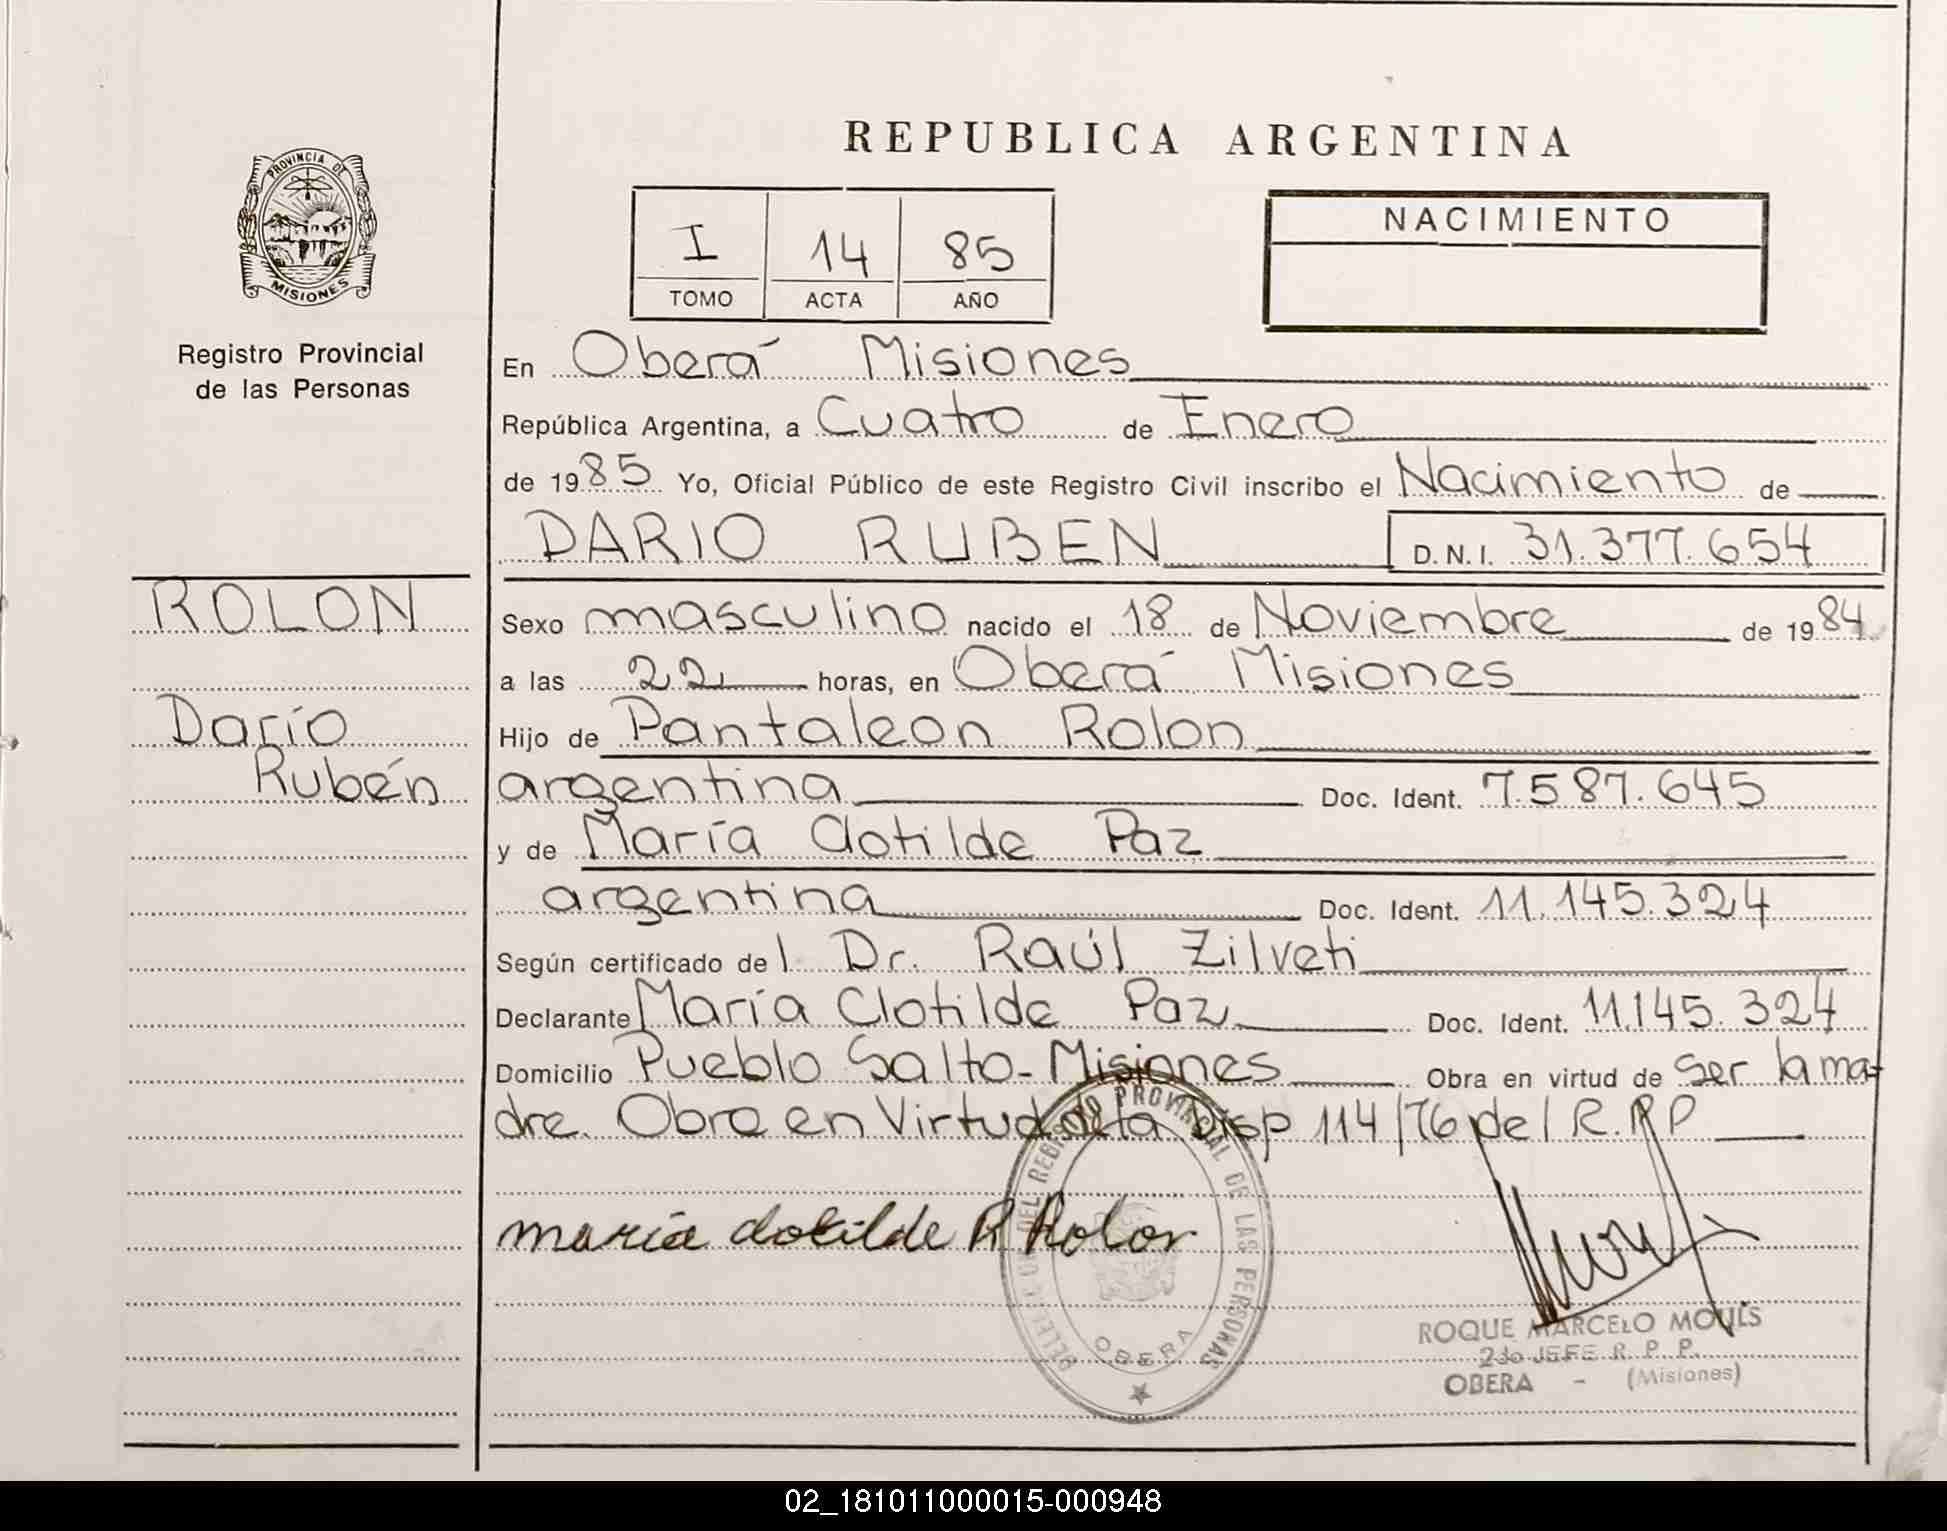 REPUBLICA ARGENTINA
PROVINCIA DE
MISIONES
Registro Provincial
de las Personas
I 14 85
TOMO ACTA AÑO
NACIMIENTO
En Oberá Misiones
República Argentina, a Cuatro de Enero
de 1985 Yo, Oficial Público de este Registro Civil inscribo el Nacimiento de
DARIO RUBEN D.N.I. 31.377.654
ROLON
Darío
Rubén
Sexo masculino nacido el 18 de Noviembre de 1984
a las 22 horas, en Oberá Misiones
Hijo de Pantaleon Rolon
argentina Doc. Ident. 7.587.645
y de María Clotilde Paz
argentina Doc. Ident. 11.145.324
Según certificado del Dr. Raúl Zilveti
Declarante María Clotilde Paz Doc. Ident. 11.145.324
Domicilio Pueblo Salto-Misiones Obra en virtud de ser la ma=
dre. Obra en Virtud de la Disp 114/76 del R.P.P
maría clotilde P Rolon
DEL REGISTRO PROVINCIAL DE LAS PERSONAS
OBERA
ROQUE MARCELO MOULS
2do JEFE R. P. P.
OBERA - (Misiones)
02_181011000015-000948